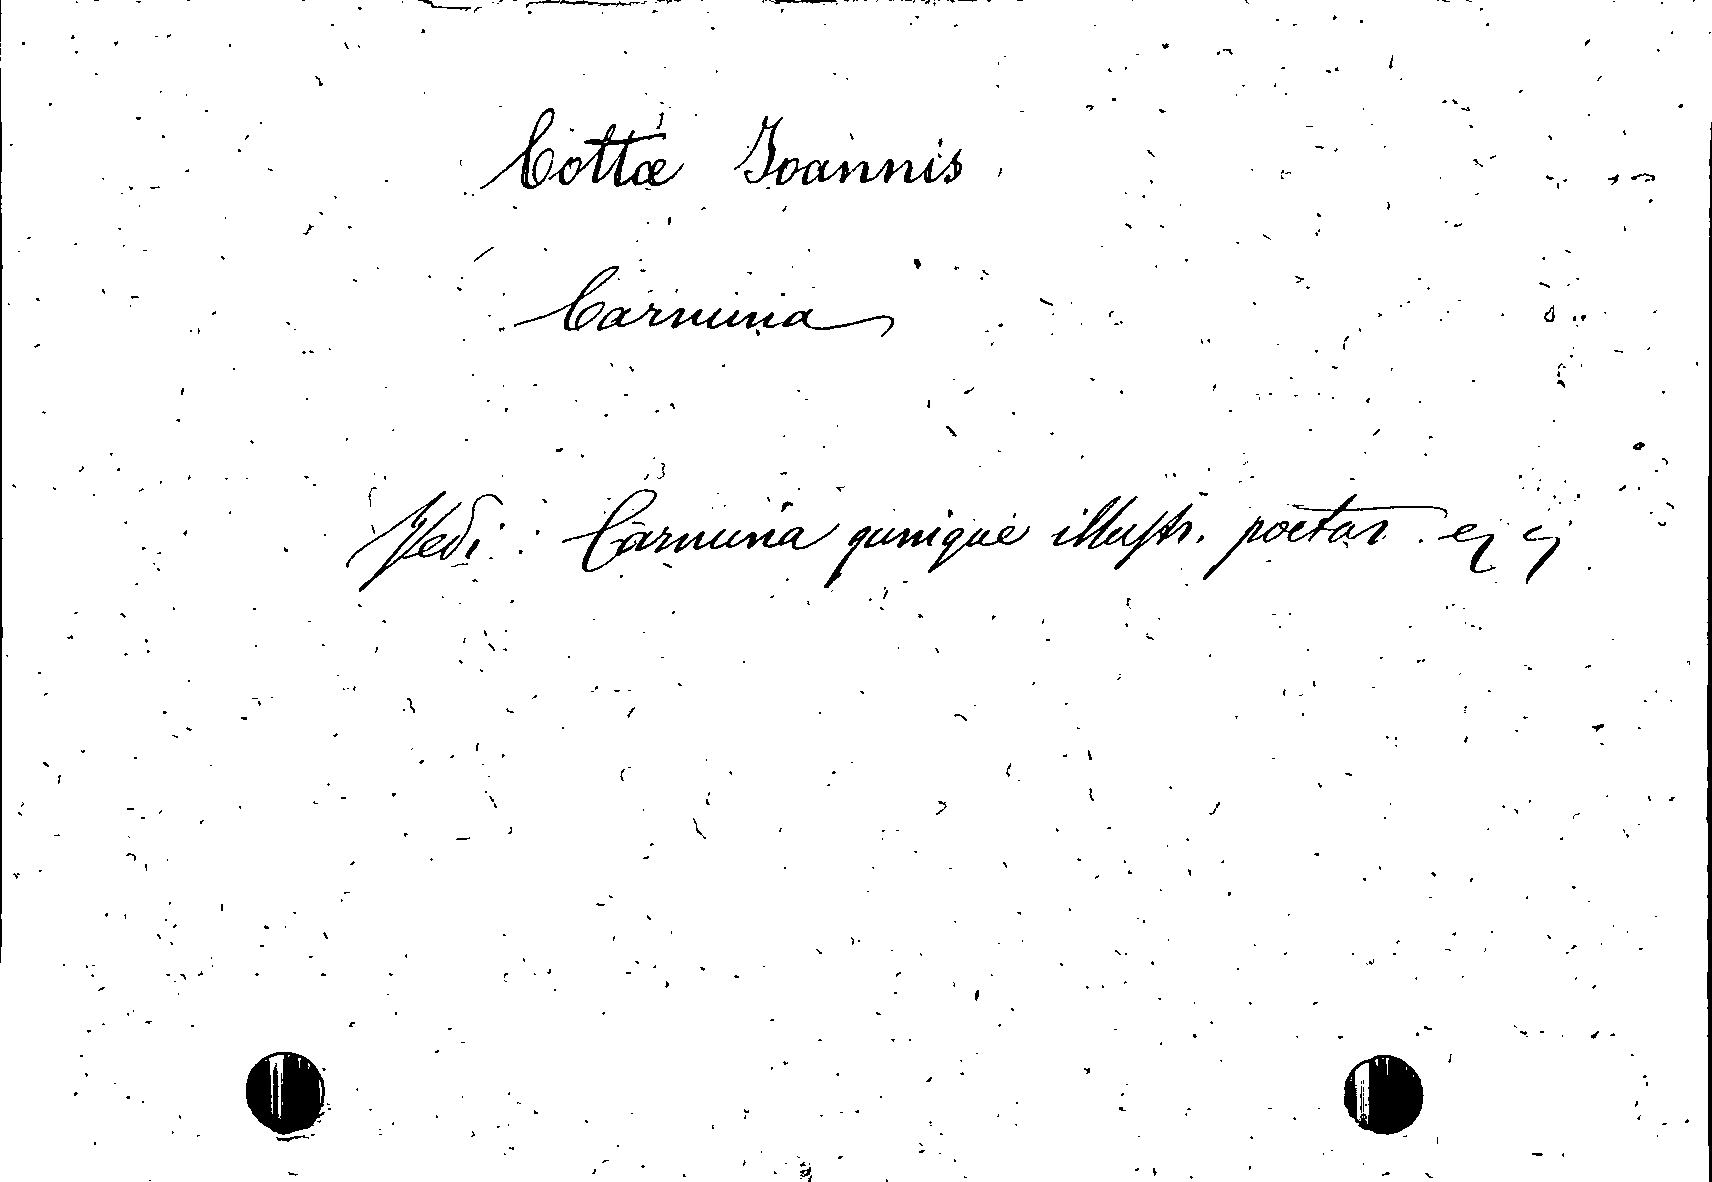 Cottæ Joannis
Carmina
Vedi: Carmina quinque illustr. poetar.